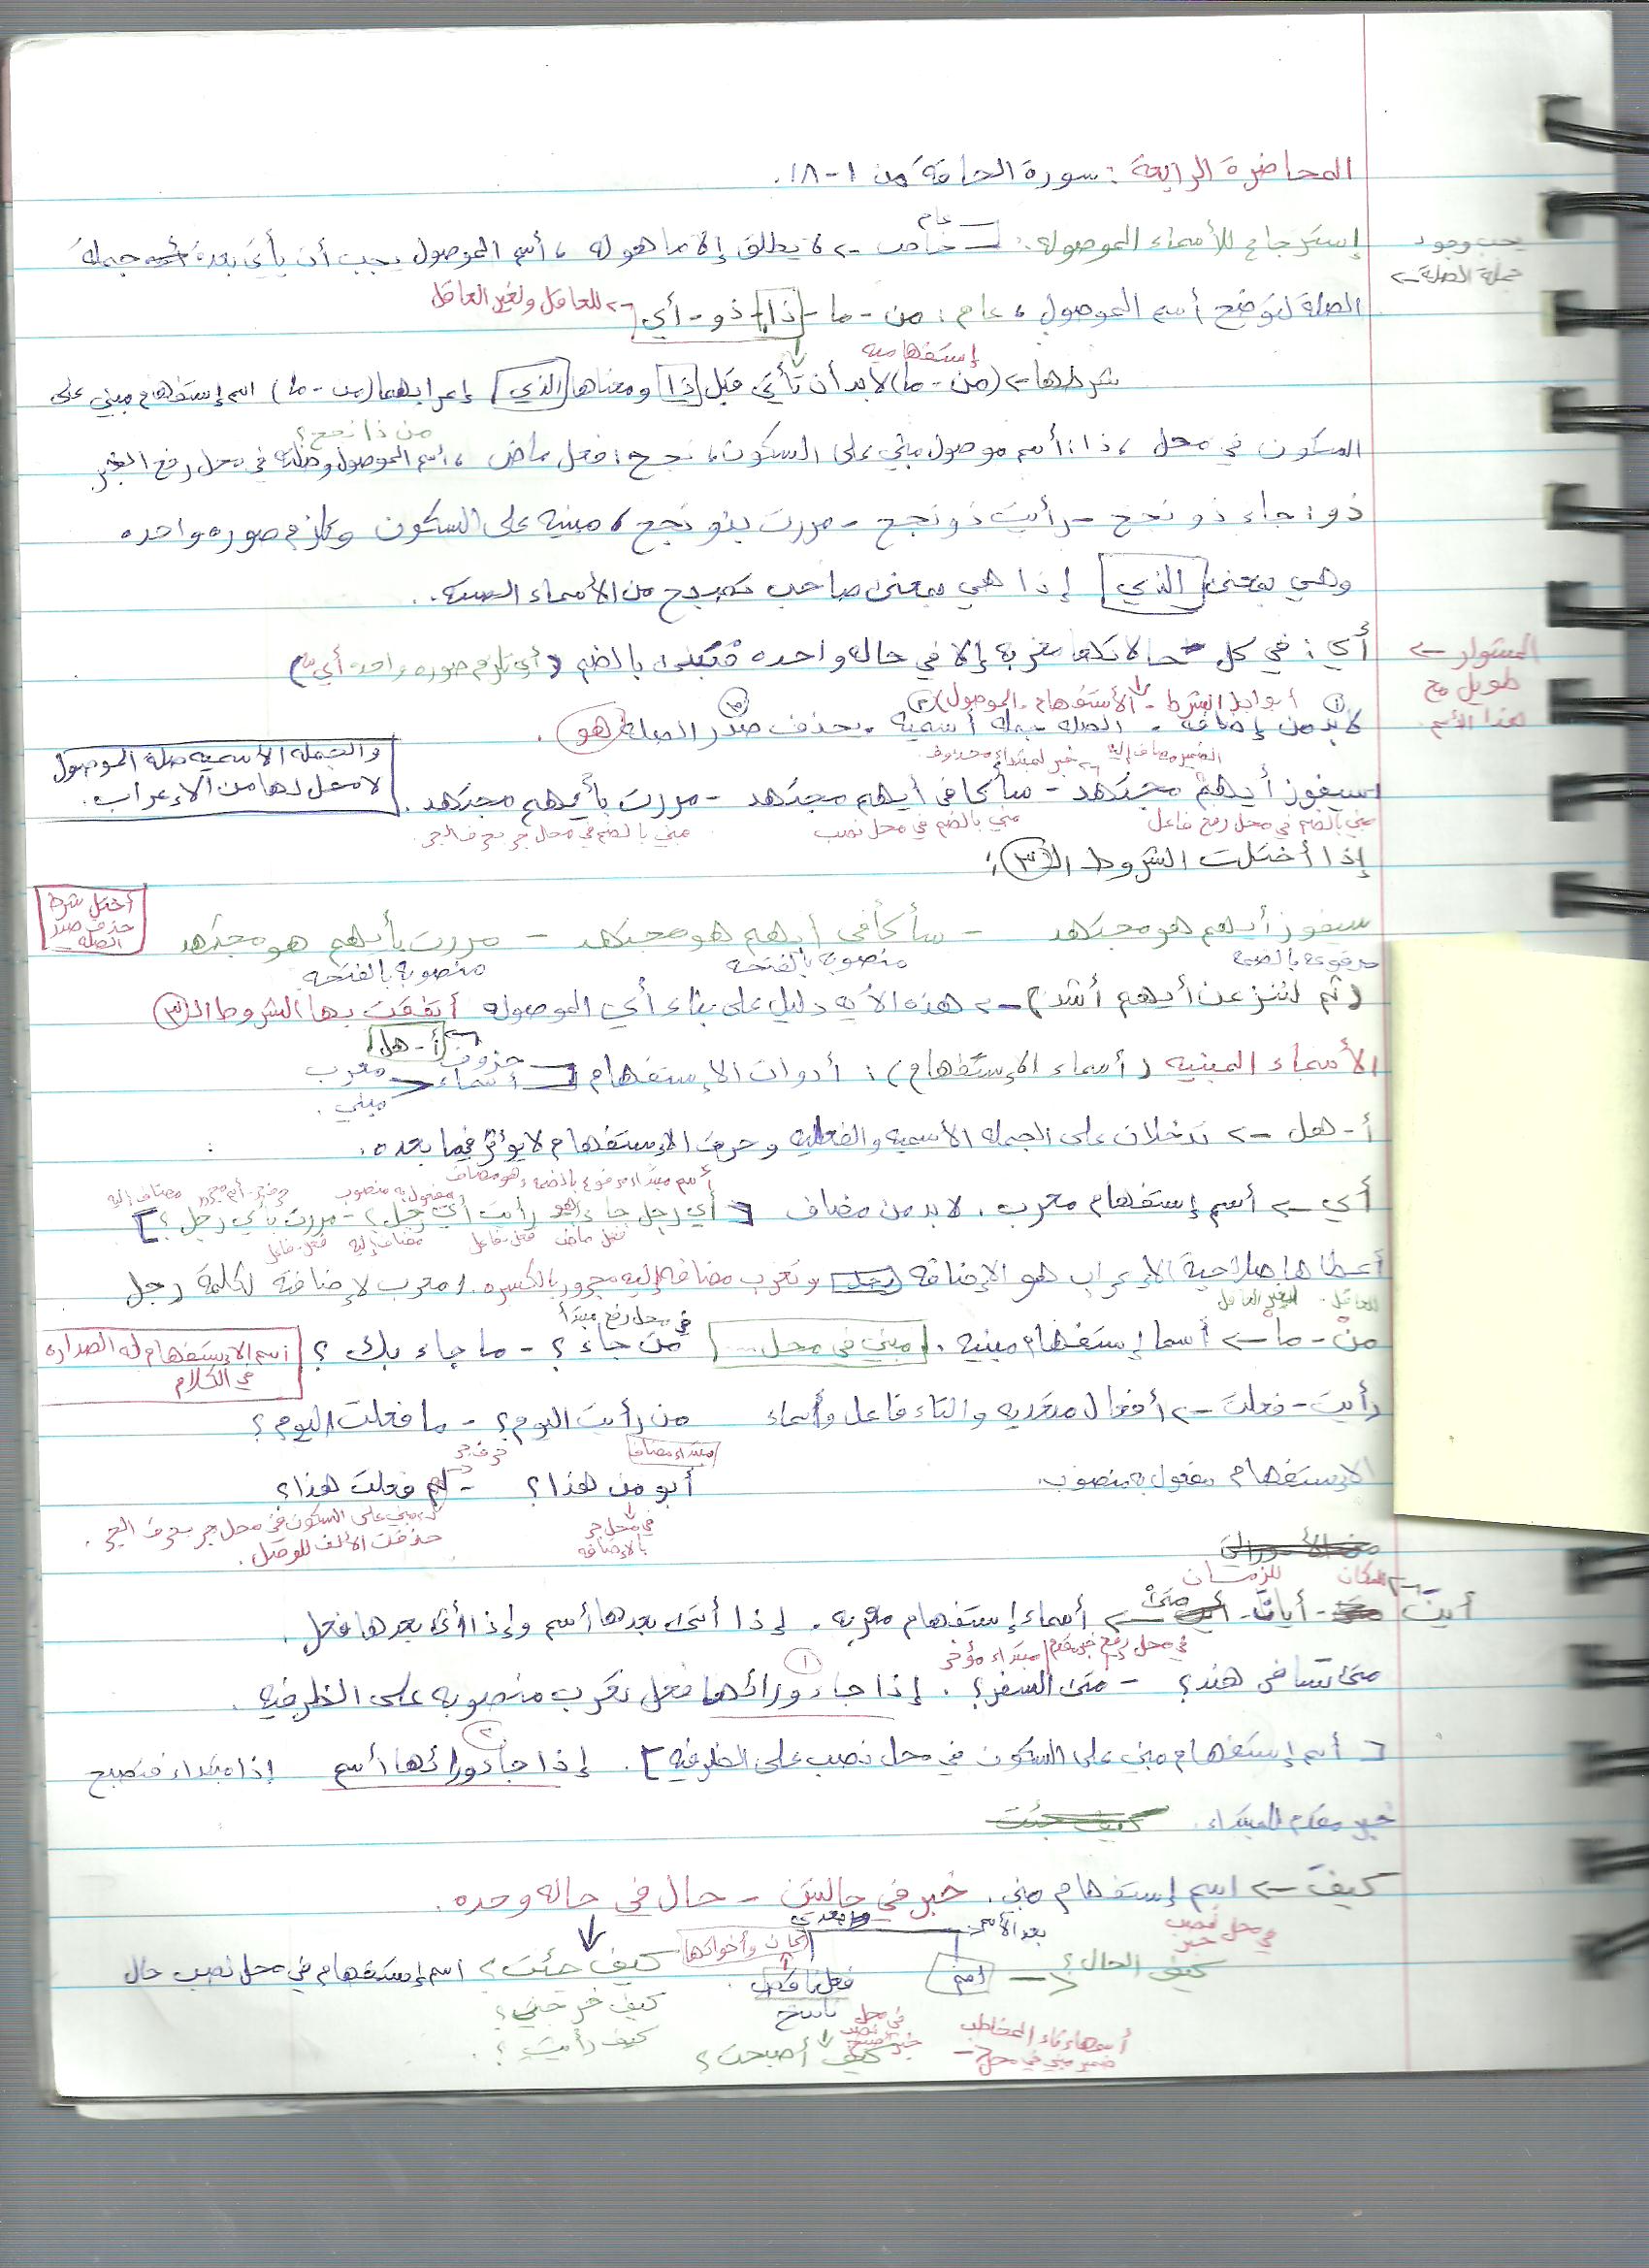 المحاضرة الرابعة : سورة الحاقة من ١-١٨.
عام
يجب وجود
إسترجاع للأسماء الموصوله: خاص -> لا يطلق إلا ما هو له ، أسم الموصول يجب أن يأتي بعدة جملة
جملة الصلة ->
الصلة لتوضح أسم الموصول ، عام : من - ما - ذا - ذو - أي -> للعاقل ولغير العاقل
إستفهاميه
شرطها -> (من - ما) لابد أن تأتي قبل ذا ومعناها الذي إعرابهما (من - ما) اسم إستفهام مبني على
من ذا نجح؟
السكون في محل ، ذا : أسم موصول مبني على السكون ، نجح : فعل ماضي ، أسم الموصول وصلته في محل رفع الخبر.
ذو : جاء ذو نجح - رأيت ذو نجح - مررت بذو نجح ، مبنيه على السكون وتلزم صوره واحده
وهي بمعنى الذي إذا هي بمعنى صاحب تصبح من الأسماء الستة.
أي : في كل حالاتها معربة إلا في حاله واحده فتبنى بالضم (أي تلزم صوره واحده أي)
طويل مع
هذا الأسم
الشرط - الأستفهام - الموصول
١ لابد من إضافه . ٢ الصله جمله أسميه . ٣ يحذف صدر الصله هو .
الضمير مضاف إليه خبر لمبتدأ محذوف
والجمله الاسميه صلة الموصول
لا محل لها من الإعراب.
سيفوز أيهم مجتهد - سأكافئ أيهم مجتهد - مررت بأيهم مجتهد .
مبني بالضم في محل رفع فاعل مبني بالضم في محل نصب مبني بالضم في محل جر بحرف الجر
إذا أختلت الشروط الـ ٣ :
أختل شرط
حذف صدر
الصله
سيفوز أيهم هو مجتهد - سأكافئ أيهم هو مجتهد - مررت بأيهم هو مجتهد
مرفوعة بالضمة منصوبة بالفتحة منصوبة بالفتحه
(ثم لننزعن أيهم أشد) -> هذه الآيه دليل على بناء أي الموصوله أتفقت بها الشروط الـ ٣
أ - هل
الأسماء المبنيه (أسماء الإستفهام) : أدوات الإستفهام حروف أسماء معرب
مبني .
أ - هل -> تدخلان على الجمله الاسميه والفعليه وحرف الإستفهام لا يؤثر فيما بعده .
أسم مبتداء مرفوع بالضمه وهو مضاف مفعول به منصوب مضاف إليه
أي -> أسم إستفهام معرب . لابد من مضاف [أي رجل جاء رأيت أي رجل ؟ - مررت بأي رجل ؟]
فعل ماضي فعل-فاعل مضاف إليه فعل-فاعل
أعطاها صلاحية الإعراب هو الإضافة رجل وتعرب مضاف إليه مجرور بالكسره . / معرب لإضافته لكلمة رجل
للعاقل . لغير العاقل
في محل رفع مبتدأ
من - ما -> أسما إستفهام مبنيه . (مبني في محل ....) من جاء ؟ - ما جاء بك ؟
اسم الإستفهام له الصداره
في الكلام
رأيت - فعلت -> أفعال متعديه والتاء فاعل وأسماء من رأيت اليوم؟ - ما فعلت اليوم ؟
مبتداء مضاف حرف جر
الإستفهام مفعول به منصوب. أبو من هذا ؟ - لم فعلت هذا؟
في محل جر
بالإضافه
مبني على السكون في محل جر بحرف الجر .
حذفت الألف للوصل .
للمكان للزمان
أين - أيان - متى -> أسماء إستفهام معربه . إذا أتى بعدها أسم وإذا أتى بعدها فعل .
في محل رفع خبر مقدم / مبتداء مؤخر
متى تسافر هند؟ - متى السفر؟ . ١ إذا جاء ورائها فعل تعرب منصوبه على الظرفيه .
[أسم إستفهام مبني على السكون في محل نصب على الظرفيه] . ٢ إذا جاء ورائها أسم إذا مبتداء فتصبح
خبر مقدم للمبتداء .
كيف -> اسم إستفهام مبني . خبر في حالتين - حال في حاله وحده .
في محل نصب
خبر
بعد الأسم
كيف الحال ؟ -> أسم فعل ناقص كان وأخواتها كيف جئت ؟ اسم إستفهام في محل نصب حال
ناسخ كيف خرجتي ؟
كيف أصبحت ؟ كيف رأيت ؟
في محل نصب خبر أصبح
أسمها تاء المخاطب
ضمير مبني في محل